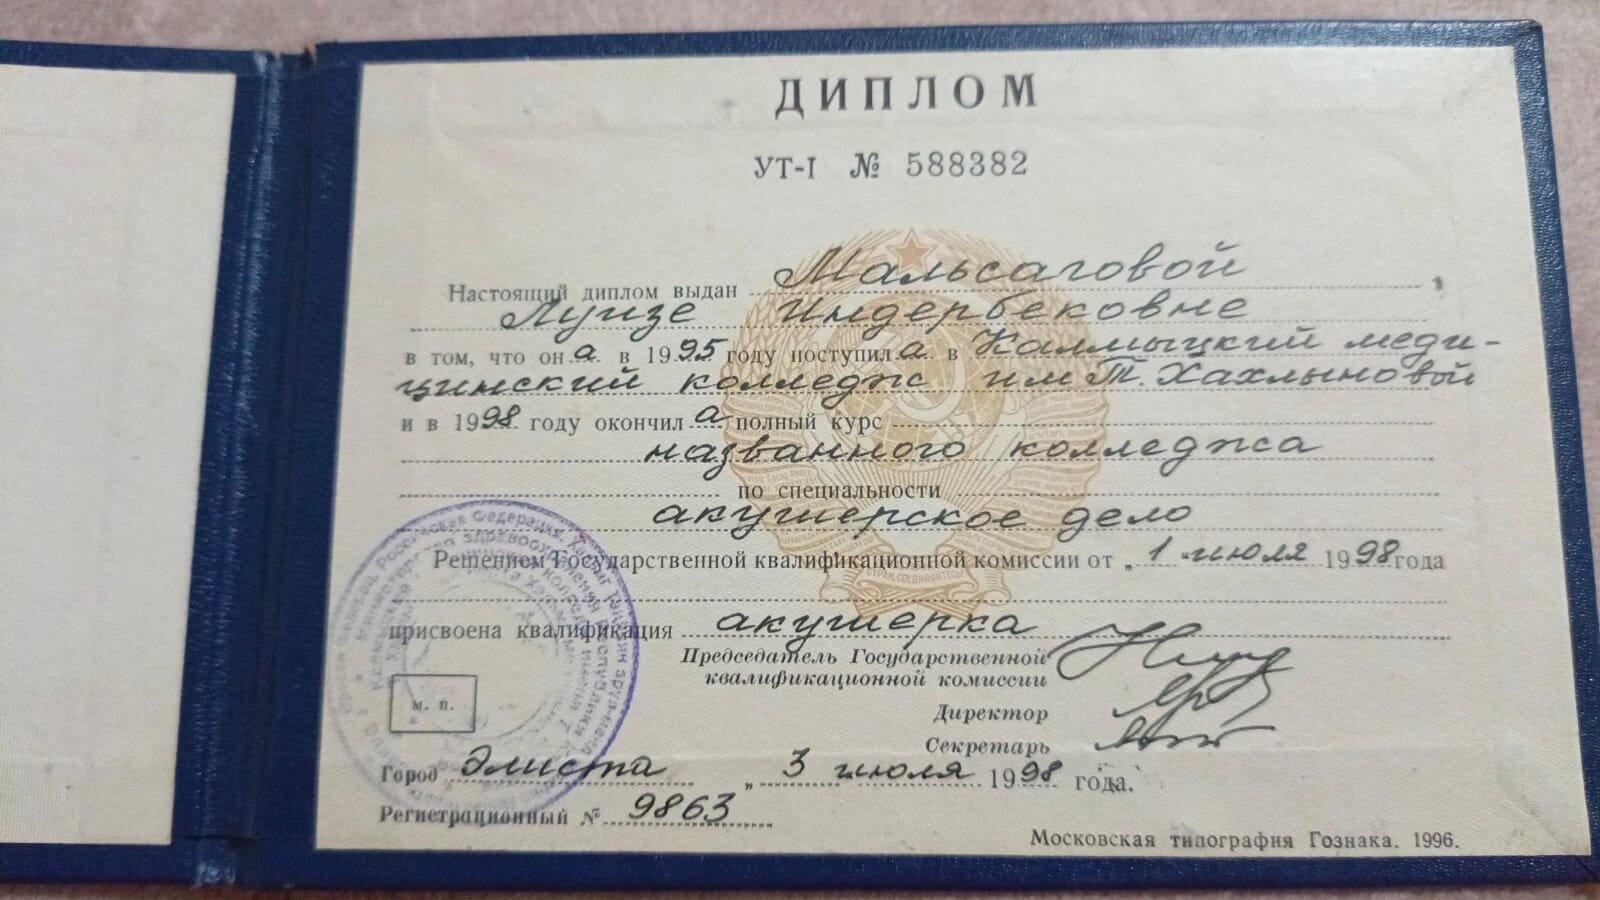 ДИПЛОМ
УТ-I № 588382
Настоящий диплом выдан Мальсаговой
Луизе Индербековне
в том, что она в 1995 году поступила в Калмыцкий меди-
цинский колледж им Т. Хахлыновой
и в 1998 году окончила полный курс
названного колледжа
по специальности
акушерское дело
Решением Государственной квалификационной комиссии от „1" июля 1998 года
присвоена квалификация акушерка
Председатель Государственной
квалификационной комиссии
Директор
Секретарь
м. п.
Город Элиста „3 июля 1998 года.
Регистрационный № 9863
Московская типография Гознака. 1996.